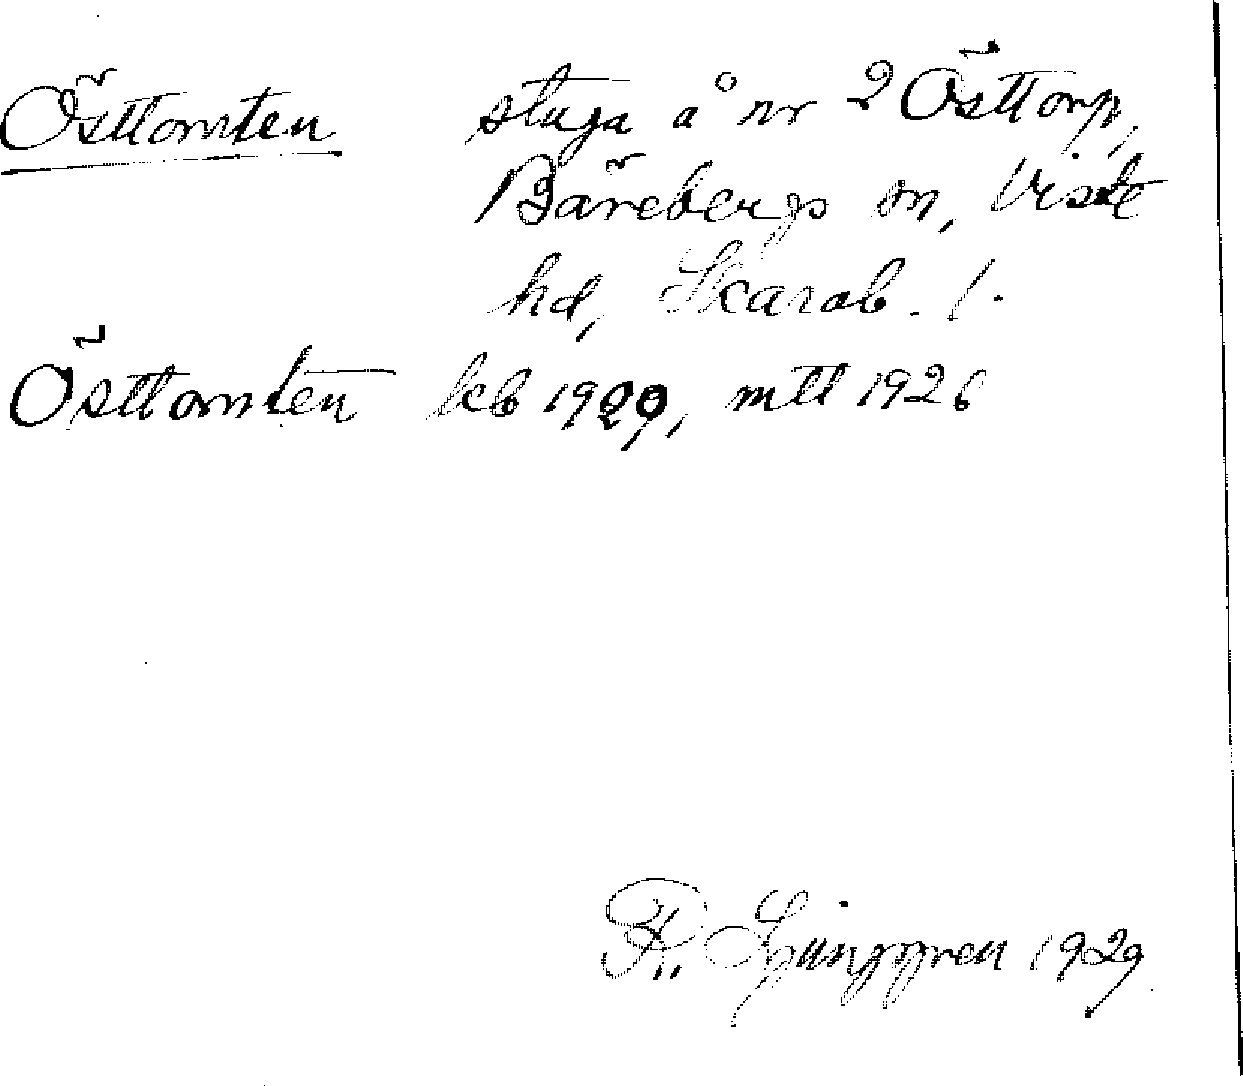 Östtomten stuga å nr 2 Östtorp,
Bärebergs sn, Viste
hd, Skarab. l.
Östtomten kcb 1929, mtl 1926
R. Ljunggren 1929